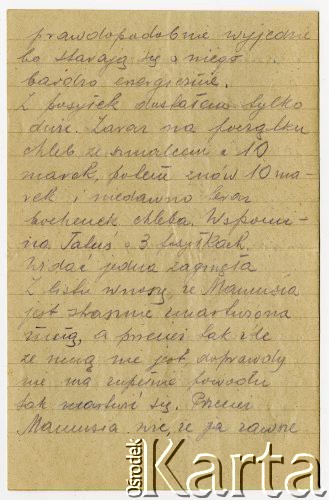 prawdopodobnie wyjedzie
bo starają się o niego
bardzo energicznie.
Z posyłek dostałem tylko
dwie. Zaraz na początku
chleb ze smalcem i 10
marek, potem znów 10 ma-
rek i niedawno teraz
bochenek chleba. Wspomi-
na Tatuś o 3 posyłkach.
Widać jedna zaginęła
Z listu wnoszę, że Mamusia
jest strasznie zmartwiona
mną, a przecież tak źle
ze mną nie jest doprawdy
nie ma zupełnie powodu
tak martwić się. Przecież
Mamusia wie, że ja zawsze
Ośrodek
Karta